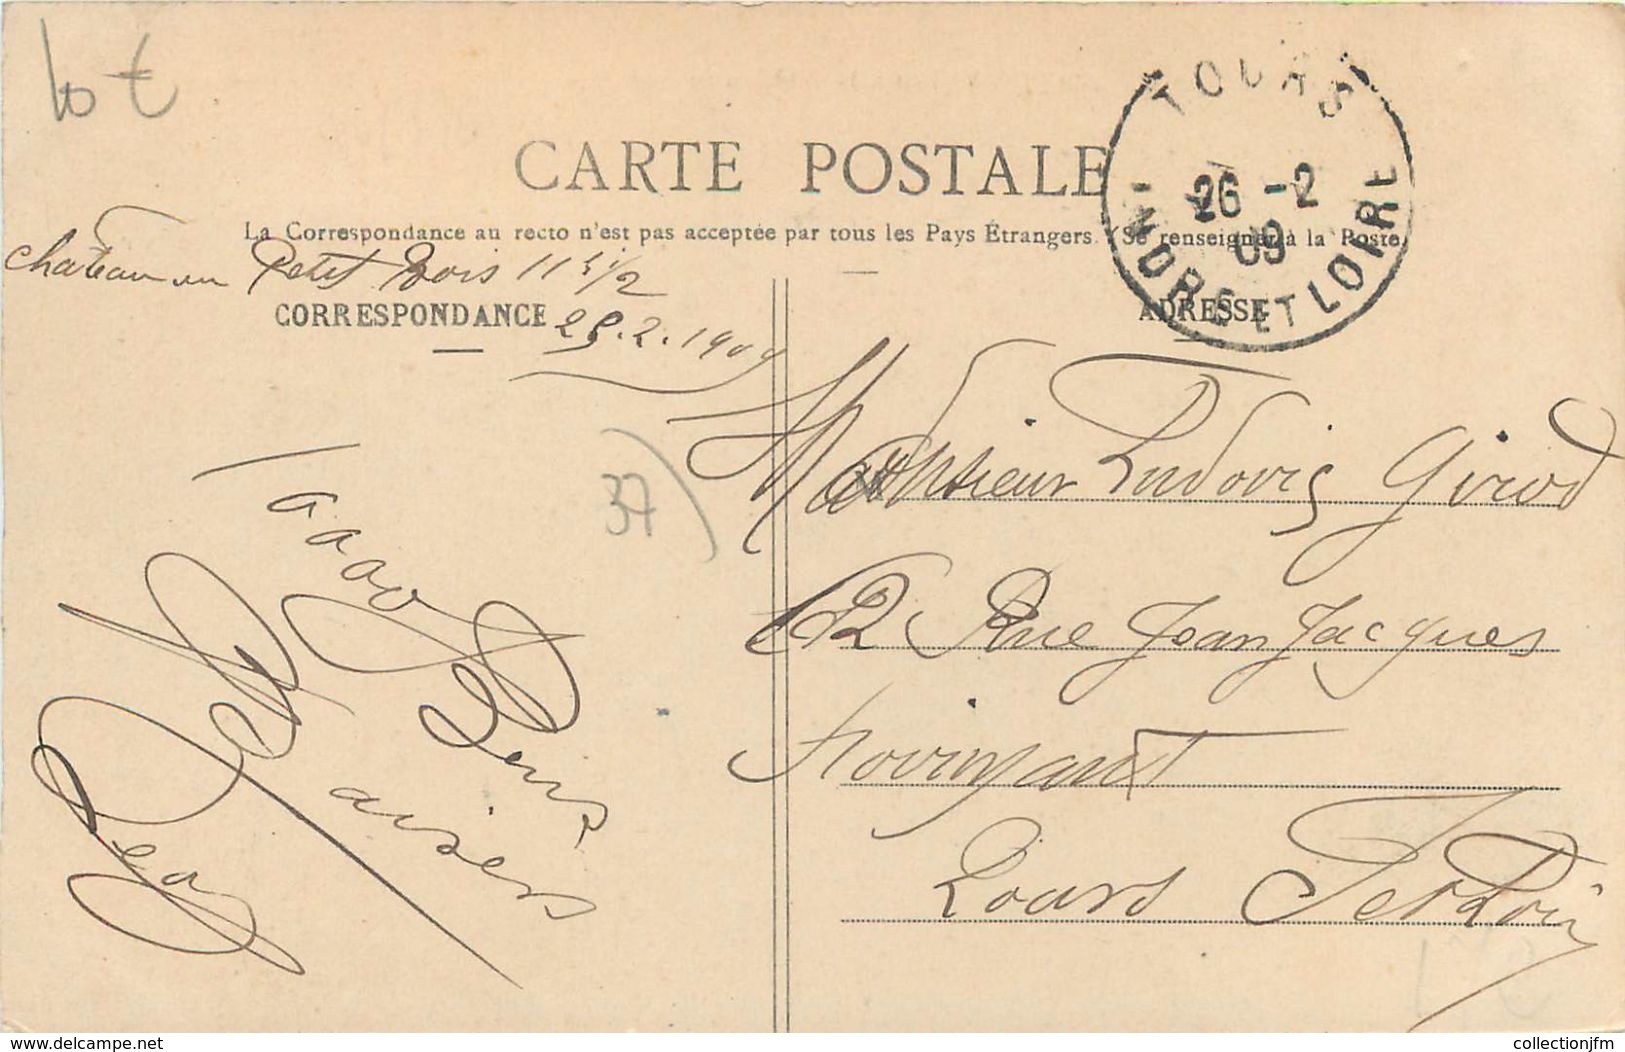 10 €
TOURS
26 -2
09
INDRE ET LOIRE
CARTE POSTALE
La Correspondance au recto n'est pas acceptée par tous les Pays Étrangers. (Se renseigner à la Poste.
Chateau du Petit Bois 11 h 1/2
CORRESPONDANCE
25.2.1909
ADRESSE
1000 Bons
Baisers
37
Monsieur Ludovic Girod
62 Rue Jean Jacques
Noirmant
Tours I et Loir
www.delcampe.net
collectionjfm